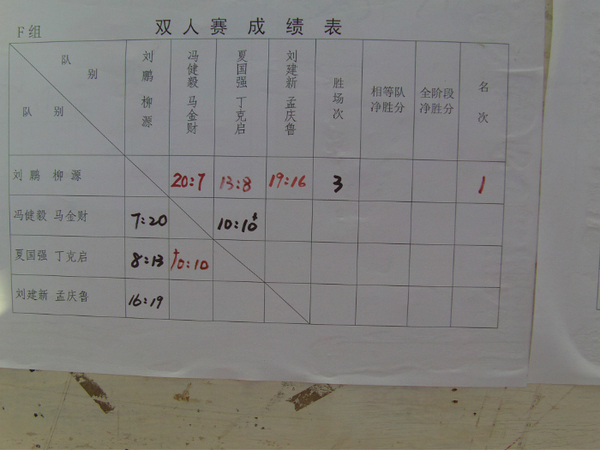 F组 双人赛成绩表
队别 队别 刘鹏 柳源 冯健毅 马金财 夏国强 丁克启 刘建新 孟庆鲁 胜场次 相等队净胜分 全阶段净胜分 名次
刘鹏 柳源 20:7 13:8 19:16 3 1
冯健毅 马金财 7:20 10:10+
夏国强 丁克启 8:13 +10:10
刘建新 孟庆鲁 16:19